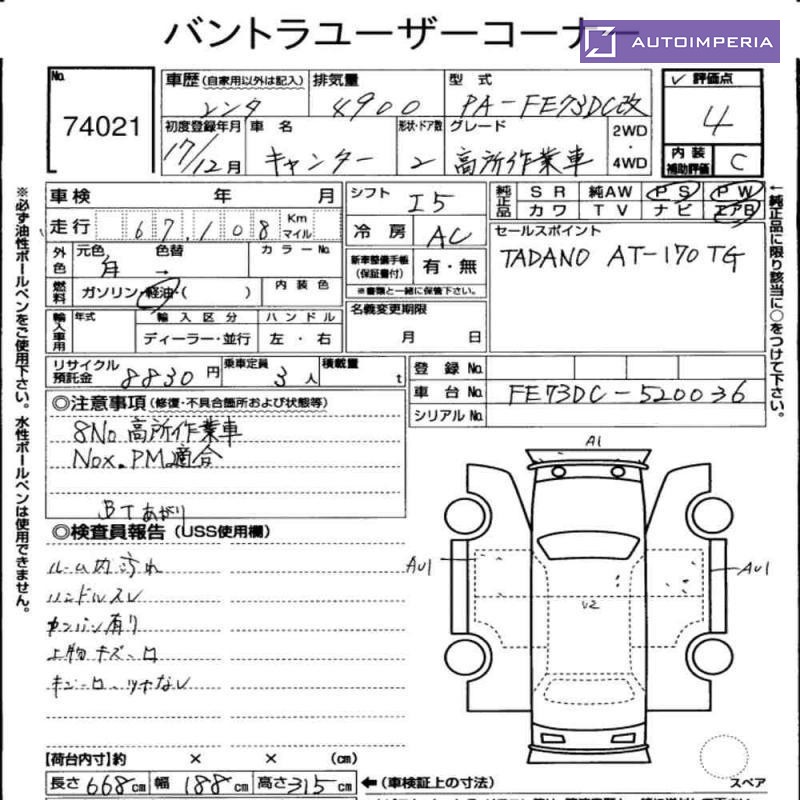 バントラユーザーコーナー
AUTOIMPERIA
No.
74021
車歴(自家用以外は記入) 排気量 型式 ✓評価点
レンタ 4900 PA-FE73DC改 4
初度登録年月 車名 形状・ドア数 グレード 2WD・4WD 内装補助評価 C
17/12月 キャンター 2 高所作業車
車検 年 月 シフト I5 純正品 SR 純AW PS PW
カワ TV ナビ エアB
走行 67,108 Km マイル 冷房 AC セールスポイント
TADANO AT-170TG
外色 元色 色替 カラーNo.
→
新車整備手帳(保証書付) 有・無
※書類と一緒に保管下さい。
燃料 ガソリン・軽油・( ) 内装色
名義変更期限
月 日
輸入車用 年式 輸入区分 ハンドル
ディーラー・並行 左・右
リサイクル預託金 8830円 乗車定員 3人 積載量 t
登録No.
車台No. FE73DC-520036
シリアルNo.
◎注意事項(修復・不具合箇所および状態等)
8No 高所作業車
Nox.PM適合
BTあがり
◎検査員報告(USS使用欄)
ルーム内汚れ
ハンドルスレ
カンバン有り
上物キズ
A1
AU1
AU1
U2
スペア
【荷台内寸】約 × × (cm)
長さ668cm 幅188cm 高さ315cm ←(車検証上の寸法)
※必ず油性ボールペンをご使用下さい。水性ボールペンは使用できません。
←純正品に限り該当に○をつけて下さい。